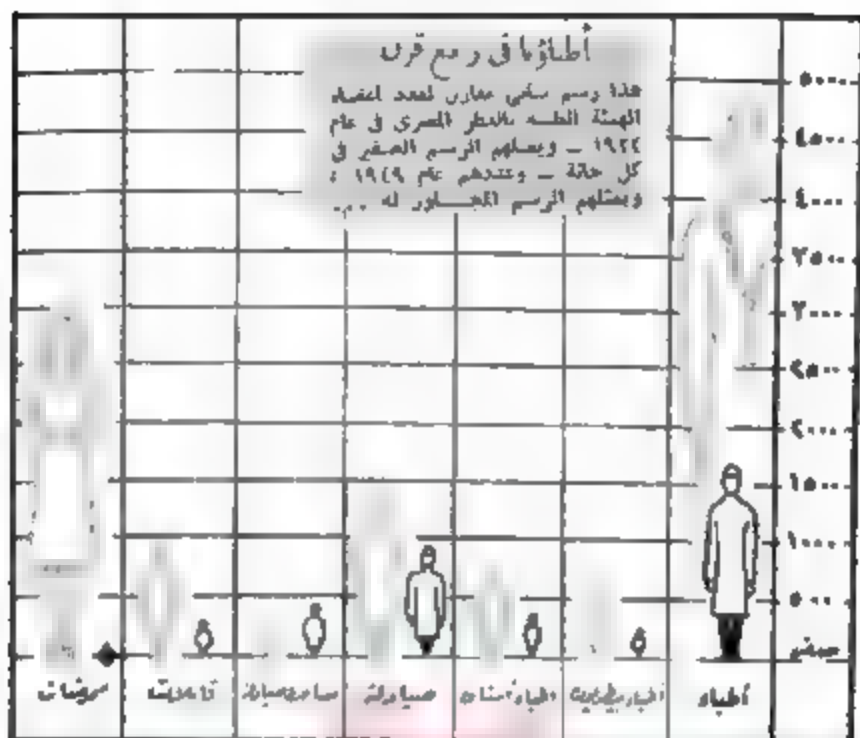 أطباؤنا في ربع قرن
هذا رسم بياني مقارن لعدد أعضاء
الهيئة الطبية بالقطر المصرى فى عام
١٩٢٤ – ويمثلهم الرسم الصغير فى
كل خانة – وعددهم عام ١٩٤٩ ؛
ويمثلهم الرسم المجاور له ...
٥٠٠٠
٤٥٠٠
٤٠٠٠
٣٥٠٠
٣٠٠٠
٢٥٠٠
٢٠٠٠
١٥٠٠
١٠٠٠
٥٠٠
صفر
أطباء
أطباء بيطريون
أطباء أسنان
صيادلة
ممرضات